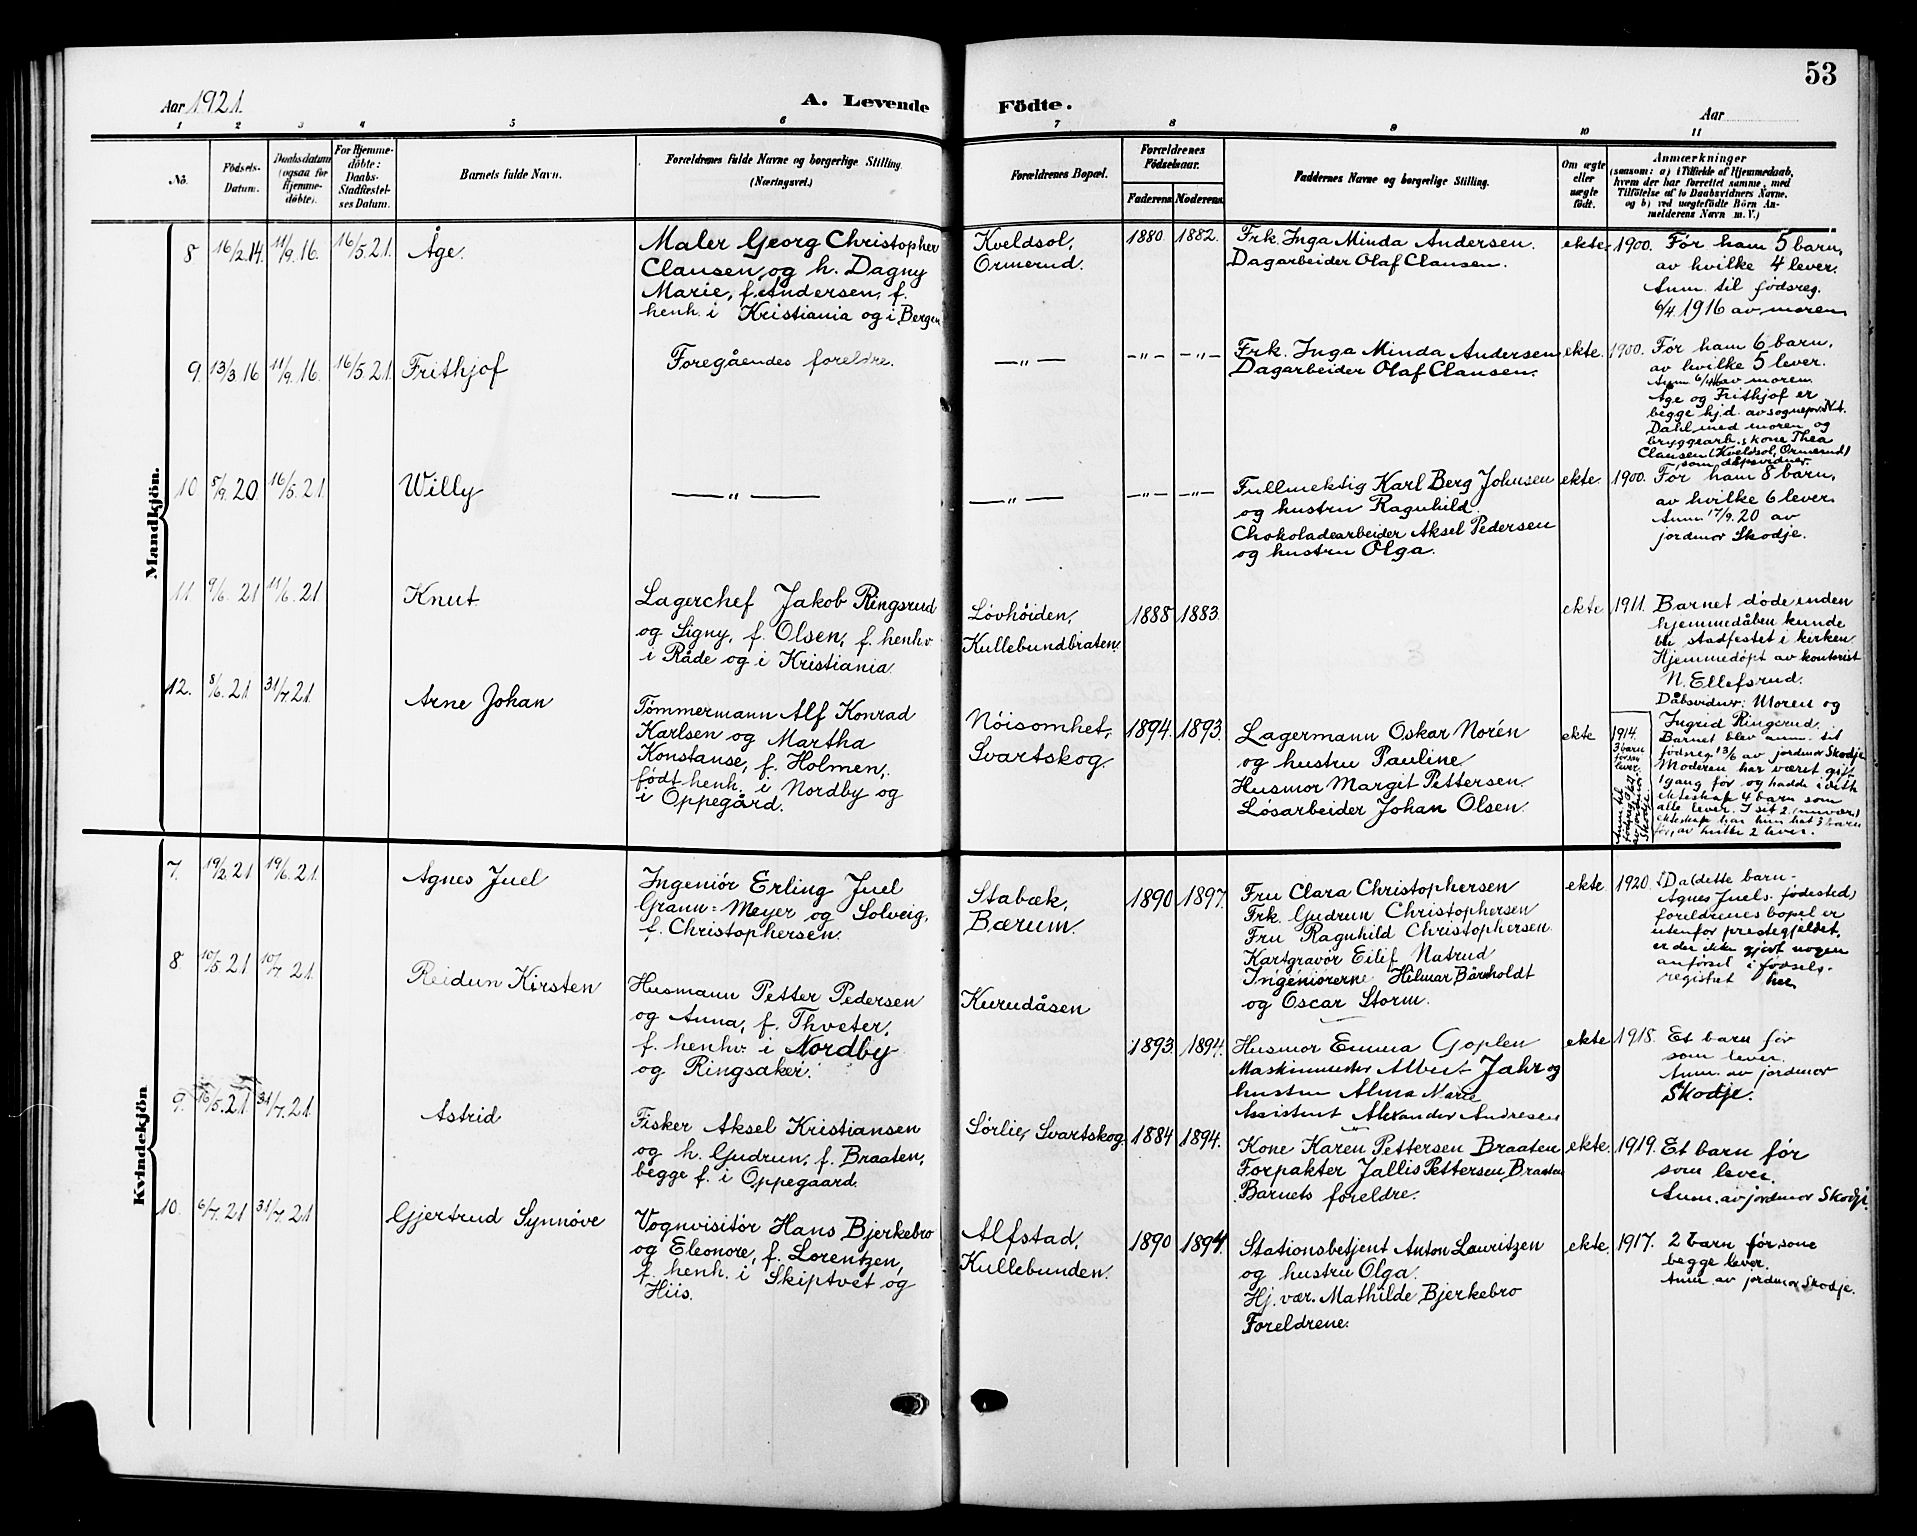 53
Aar 1921.
A. Levende Födte.
Aar
1 2 3 4 5 6 7 8 9 10 11
No.
Födsels-
Datum.
Daabsdatum
(ogsaa for
Hjemme-
döbte).
For Hjemme-
döbte:
Daabs-
Stadfæstel-
ses Datum.
Barnets fulde Navn.
Forældrenes fulde Navne og borgerlige Stilling.
(Næringsvei.)
Forældrenes Bopæl.
Forældrenes
Födselsaar.
Faderens. Moderens.
Faddernes Navne og borgerlige Stilling.
Om ægte
eller
uægte
födt.
Anmærkninger
(saasom: a) i Tilfælde af Hjemmedaab,
hvem der har forrettet samme, med
Tilföielse af to Daabsvidners Navne,
og b) ved uægtefödte Börn An-
melderens Navn m. V.)
Mandkjön.
8 16/2.14. 11/9.16. 16/5.21. Åge.
Maler Georg Christopher
Clausen og h. Dagny
Marie, f. Andersen, f.
henh. i Kristiania og i Bergen
Kveldsol,
Ormerud.
1880. 1882.
Frk. Inga Minda Andersen.
Dagarbeider Olaf Clausen.
ekte 1900. Før ham 5 barn,
av hvilke 4 lever.
Anm. til fødsreg.
6/4 1916 av moren
9. 13/3.16 11/9.16. 16/5.21. Frithjof
Foregåendes foreldre.
— „ —
— „ — — „ —
Frk. Inga Minda Andersen
Dagarbeider Olaf Clausen.
ekte. 1900. Før ham 6 barn,
av hvilke 5 lever.
Anm. 6/4 16 av moren.
Åge og Frithjof er
begge hj.d. av sognepr. N.t.
Dahl med moren og
bryggearb.s kone Thea
Clausen (Kveldsol, Ormerud)
som dåpsvidner.
10 8/9.20. 16/5.21. Willy
— „ —
— „ —
— „ — — „ —
Fullmektig Karl Berg Johnsen
og hustru Ragnhild.
Chokoladearbeider Aksel Pedersen
og hustru Olga.
ekte. 1900. Før ham 8 barn,
av hvilke 6 lever.
Anm. 17/9.20 av
jordmor Skodje.
11. 9/6.21 11/6.21 Knut.
Lagerchef Jakob Ringsrud
og Signy, f. Olsen, f. henhv
i Råde og i Kristiania
Løvhøiden,
Kullebundbraten.
1888 1883.
ekte 1911. Barnet døde inden
hjemmedåben kunde
bli stadfestet i kirken.
Hjemmedøpt av kontorist
N. Ellefsrud.
Dåbsvidner: Moren og
Ingrid Ringerud.
Barnet blev anm. til
fødsreg. 13/6 av jordmor Skodje
Moderen har været gift
1 gang før og hadde i dette
ekteskap 4 barn som
alle lever. I sit 2. (nuvær.)
ekteskap har hun hat 3 barn
før, av hvilke 2 lever.
12. 8/6.21 31/7.21. Arne Johan
Tømmermann Alf Konrad
Karlsen og Martha
Konstanse, f. Holmen,
født henh. i Nordby og
i Oppegård.
Nöisomhet,
Svartskog.
1894. 1893.
Lagermann Oskar Norén
og hustru Pauline
Husmor Margit Pettersen.
Løsarbeider Johan Olsen.
ekte 1914.
3 barn
før som
lever.
Kvindekjön
7. 19/2.21 19/6.21. Agnes Juel
Ingeniör Erling Juel
Grann-Meyer og Solveig,
f. Christophersen.
Stabæk,
Bærum.
1890 1897.
Fru Clara Christophersen
Frk. Gudrun Christophersen
Fru Ragnhild Christophersen
Kartgravör Eilif Natrud
Ingeniörerne Hilmar Bårnholdt
og Oscar Storm.
ekte 1920. (Da dette barn-
Agnes Juels fødested)
foreldrenes bopel er
utenfor prestegjeldet,
er der ikke gjort nogen
anførsel i fødsels-
registret her
8. 10/5.21 10/7.21. Reidun Kirsten
Husmann Petter Pedersen
og Anna, f. Thveter,
f. henhv. i Nordby
og Ringsaker.
Kurudåsen
1893. 1894.
Husmor Emma Goplen
Maskinmester Albert Jahr og
hustru Alma Marie
Assistent Alexander Andresen
ekte 1918. Et barn før
som lever.
Anm. av jordmor
Skodje.
9. 16/5.21 31/7.21. Astrid
Fisker Aksel Kristiansen
og h. Gudrun, f. Braaten,
begge f. i Oppegaard.
Sörlie, Svartskog
1884 1894.
Kone Karen Pettersen Braaten
Forpakter Jallis Pettersen Braaten
Barnets foreldre.
ekte. 1919. Et barn før
som lever.
Anm. av jordmor Skodje.
10. 6/7.21 31/7.21 Gjertrud Synnöve
Vognvisitør Hans Bjerkebro
og Eleonore, f. Lorentzen,
f. henh. i Skiptvet og
Hiis.
Alfstad,
Kullebunden.
1890 1894.
Stationsbetjent Anton Lauritzen
og hustru Olga.
Hj. vær. Mathilde Bjerkebro
Foreldrene.
ekte. 1917. 2 barn før som
begge lever.
Anm. av jordmor Skodje.